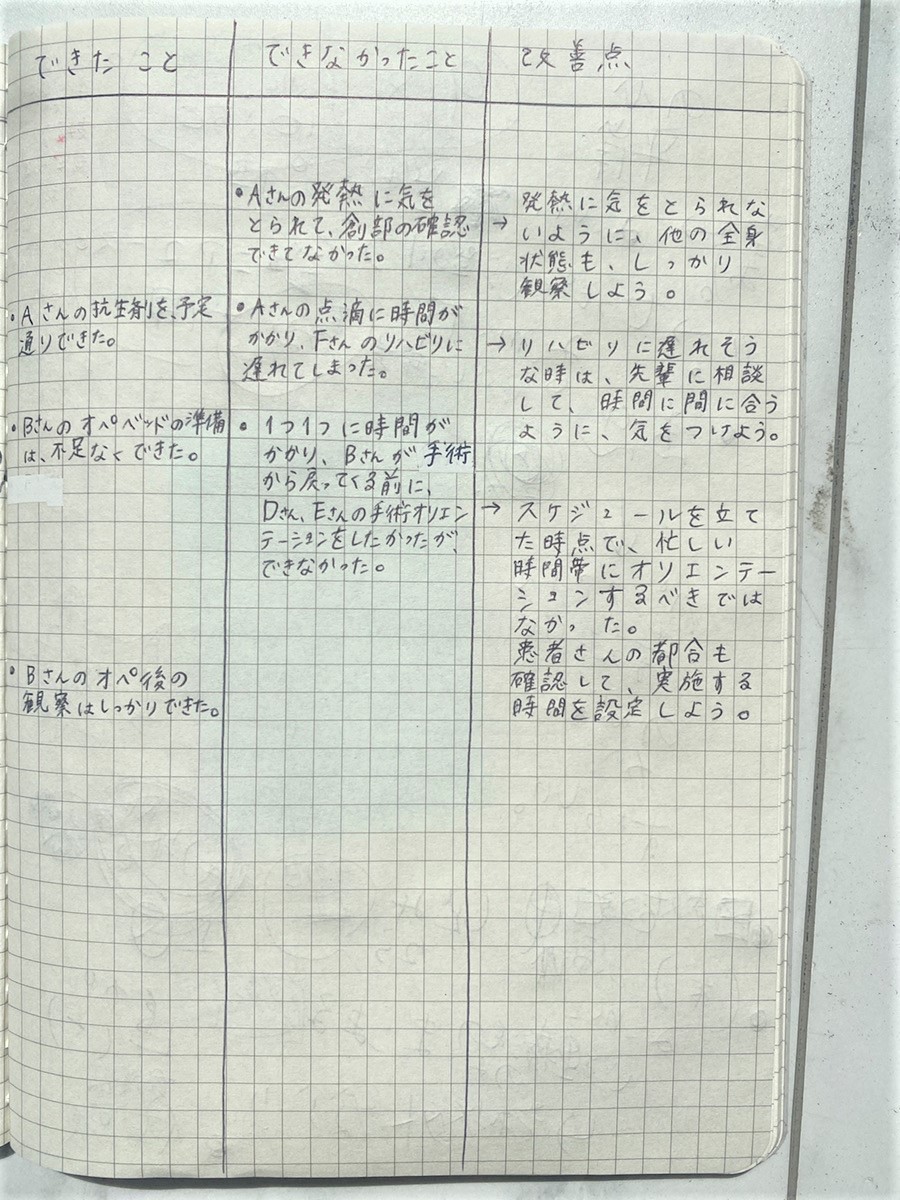 できたこと
できなかったこと
改善点
・Aさんの抗生剤を、予定
通りできた。
・Bさんのオペベッドの準備
は、不足なくできた。
・Bさんのオペ後の
観察はしっかりできた。
・Aさんの発熱に気を
とられて、創部の確認
できてなかった。
・Aさんの点滴に時間が
かかり、Fさんのリハビリに
遅れてしまった。
・1つ1つに時間が
かかり、Bさんが手術
から戻ってくる前に、
Dさん、Eさんの手術オリエン
テーションをしたかったが、
できなかった。
→発熱に気をとられな
いように、他の全身
状態も、しっかり
観察しよう。
→リハビリに遅れそう
な時は、先輩に相談
して、時間に間に合う
ように、気をつけよう。
→スケジュールを立て
た時点で、忙しい
時間帯にオリエンテー
ションするべきでは
なかった。
患者さんの都合も
確認して、実施する
時間を設定しよう。